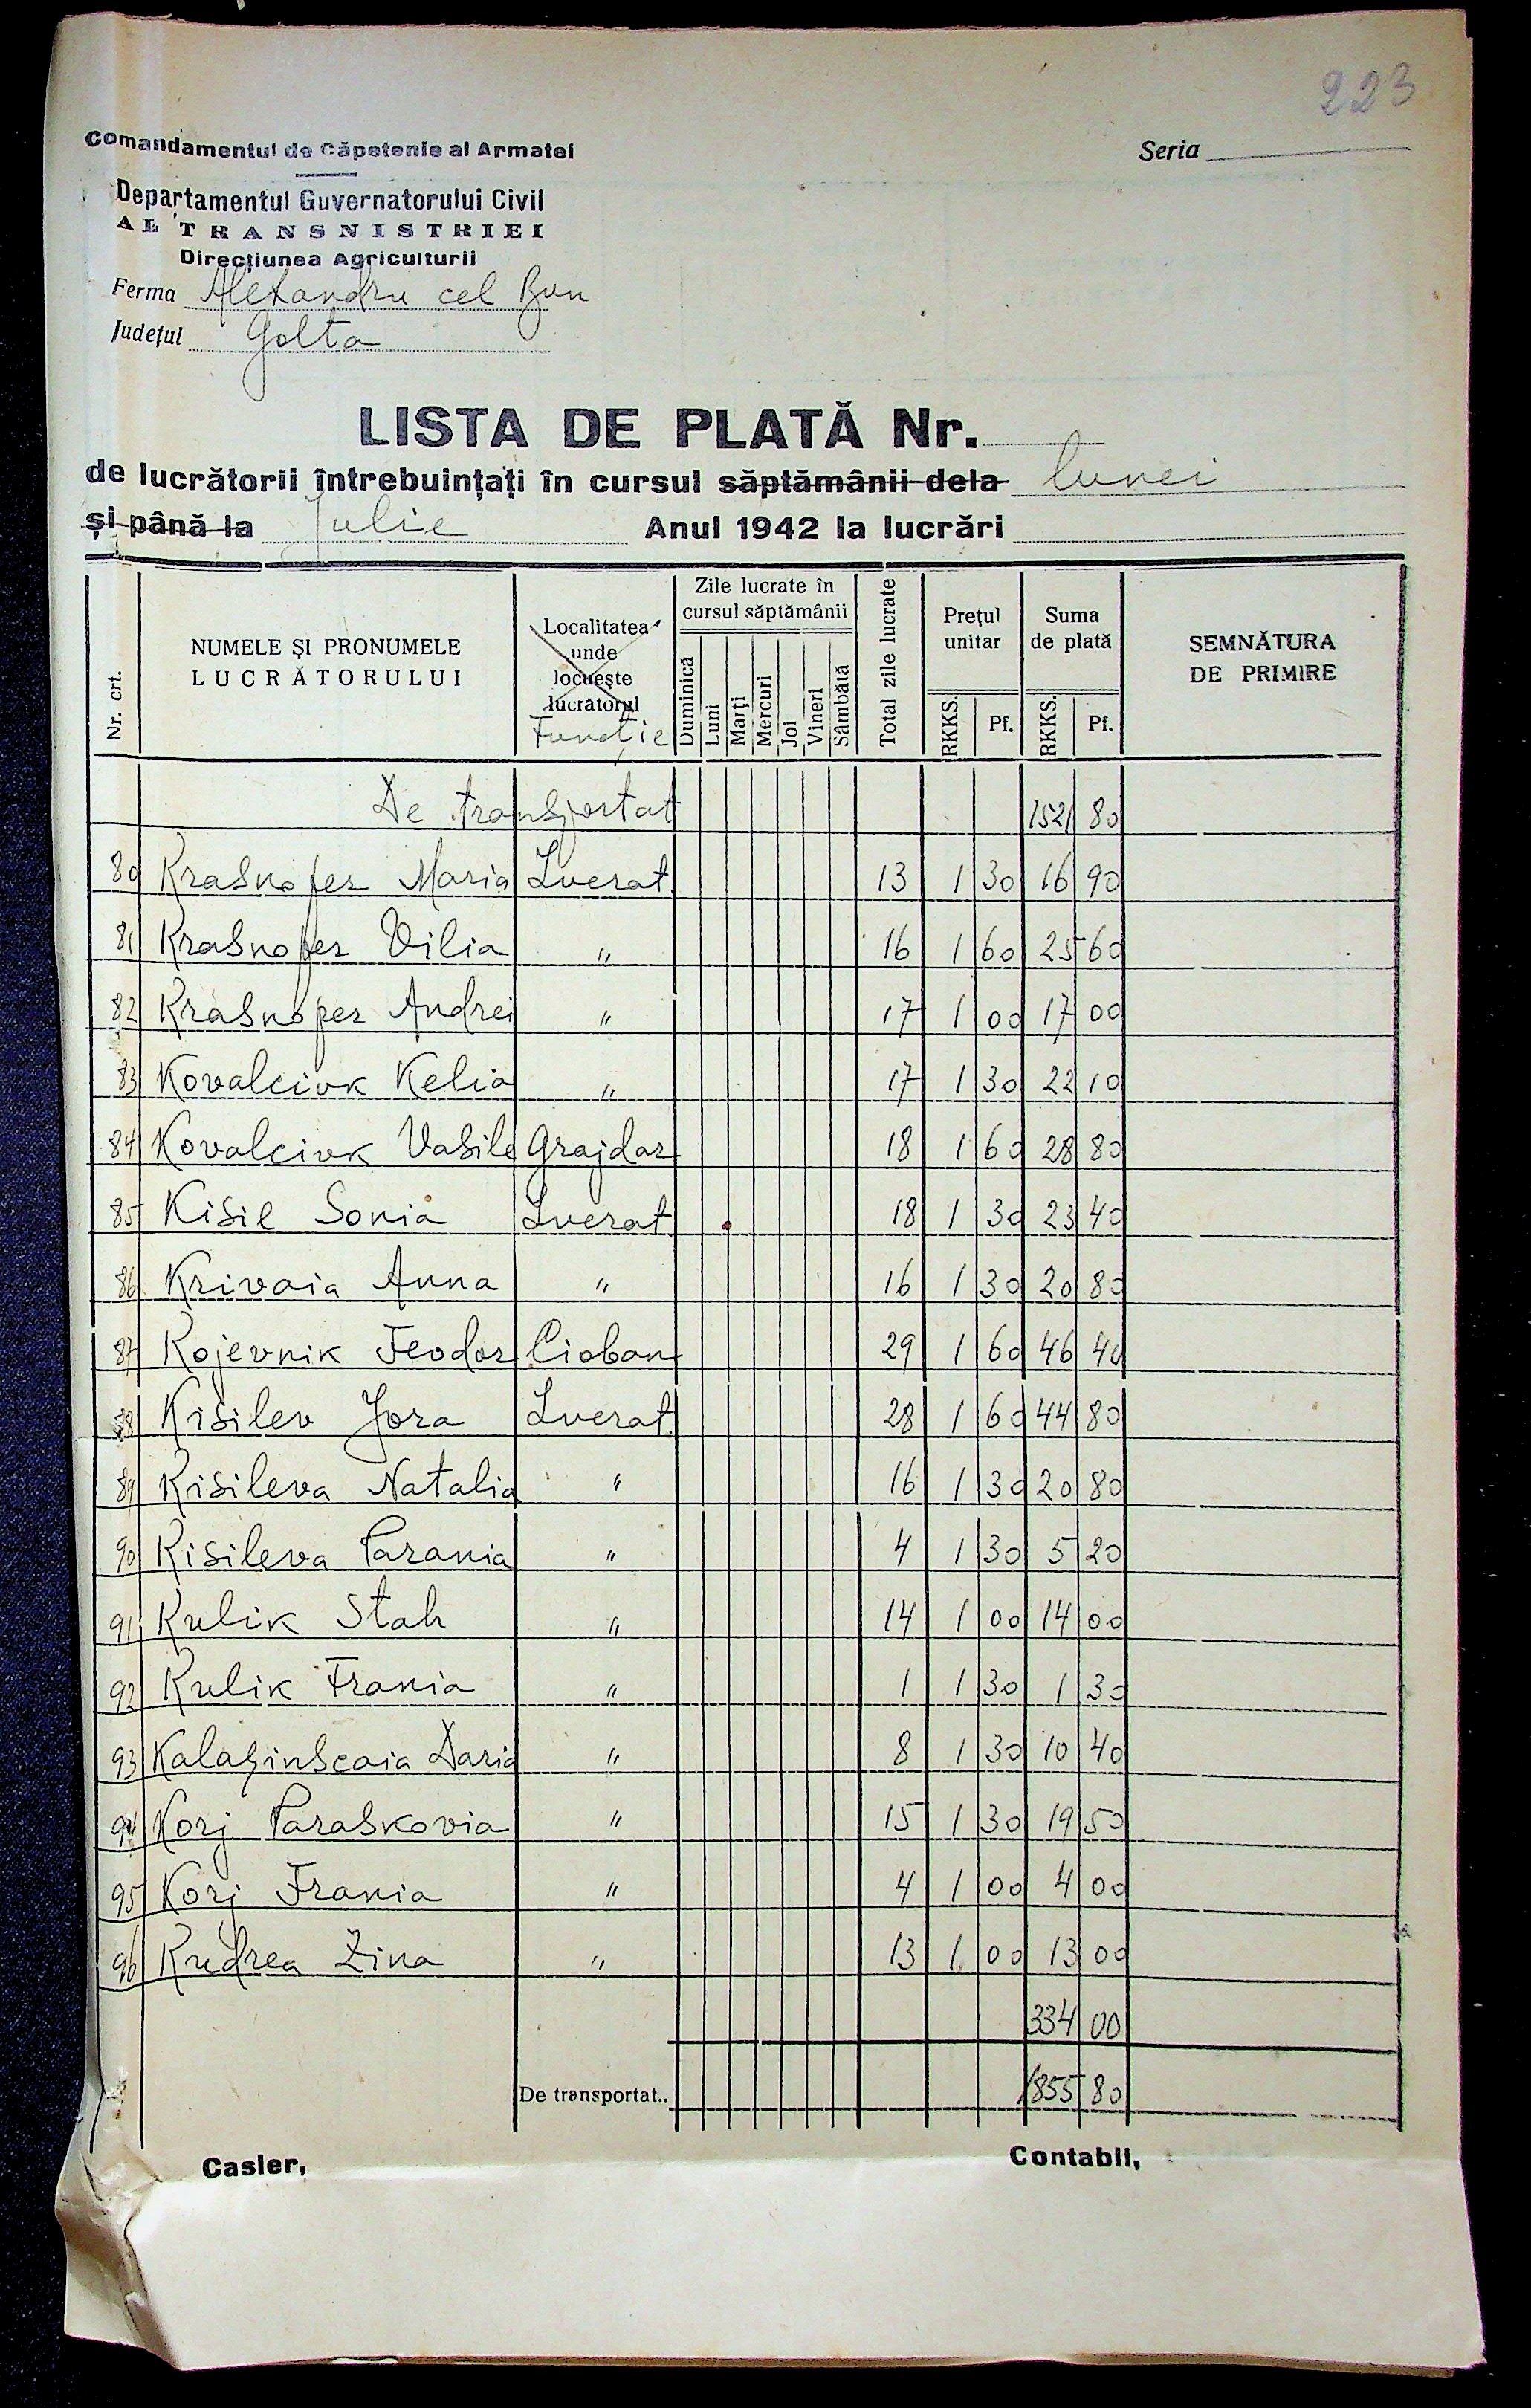 223
Comandamentul de Căpetenie al Armatei
Seria
Departamentul Guvernatorului Civil
AL TRANSNISTRIEI
Direcțiunea Agriculturii
Ferma Alexandru cel Bun
Județul Golta
LISTA DE PLATĂ Nr.
de lucrătorii întrebuințați în cursul săptămânii dela lunei
și până la Julie Anul 1942 la lucrări
Nr. crt. NUMELE ȘI PRONUMELE LUCRĂTORULUI Localitatea unde locuește lucrătorul Funcție Zile lucrate în cursul săptămânii Duminică Luni Marți Mercuri Joi Vineri Sâmbătă Total zile lucrate Prețul unitar RKKS. Pf. Suma de plată RKKS. Pf. SEMNĂTURA DE PRIMIRE
De transportat 1521 80
80 Krasnoper Maria Lucrat. 13 1 30 16 90
81 Krasnoper Vilia " 16 1 60 25 60
82 Krasnoper Andrei " 17 1 00 17 00
83 Kovalciuk Kelia " 17 1 30 22 10
84 Kovalciuk Vasile Grajdar 18 1 60 28 80
85 Kisil Sonia Lucrat. 18 1 30 23 40
86 Krivaia Anna " 16 1 30 20 80
87 Kojevnik Feodor Cioban 29 1 60 46 40
88 Kisilev Jora Lucrat. 28 1 60 44 80
89 Kisileva Natalia " 16 1 30 20 80
90 Kisileva Parania " 4 1 30 5 20
91 Kulik Stah " 14 1 00 14 00
92 Kulik Frania " 1 1 30 1 30
93 Kalaşinscaia Daria " 8 1 30 10 40
94 Korj Paraskovia " 15 1 30 19 50
95 Korj Frania " 4 1 00 4 00
96 Kudrea Zina " 13 1 00 13 00
334 00
De transportat.. 1855 80
Casier, Contabil,